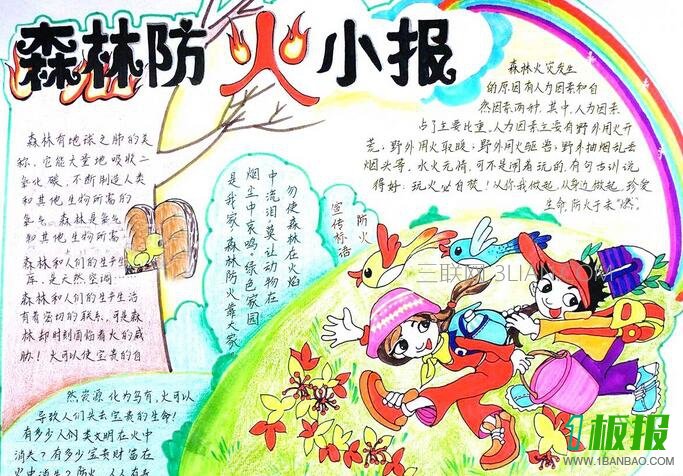 森林防火小报
森林有地球之肺的美
称，它能大量地吸收二
氧化碳，不断制造人类
和其他生物所需的
氧气。森林是氧气
和其他生物所需的
森林和人们的生子生活
库，是天然空调
森林和人们的生子生活
有着密切的联系，可是森
林却时刻面临着火的威
胁！火可以使宝贵的自
然资源化为乌有，火可以
导致人们失去宝贵的生命！
有多少人间类文明在火中
消失？有多少宝贵财富在
火中消失？防火，人人有责
防火
宣传标语
勿使森林在火焰
中流泪，莫让动物在
烟尘中哀鸣，绿色家园
是我家，森林防火靠大家
森林火灾发生
的原因有人力因素和自
然因素两种，其中，人力因素
占了主要比重，人力因素主要有野外用火开
荒；野外用火取暖；野外用火驱兽；野外抽烟乱丢
烟头等。水火无情，可不是闹着玩的，有句古训说
得好：玩火必自焚！从你我做起，从身边做起，珍爱
生命，防火于未“燃”。
三联网 3LIAN.COM
1板报
WWW.1BANBAO.COM